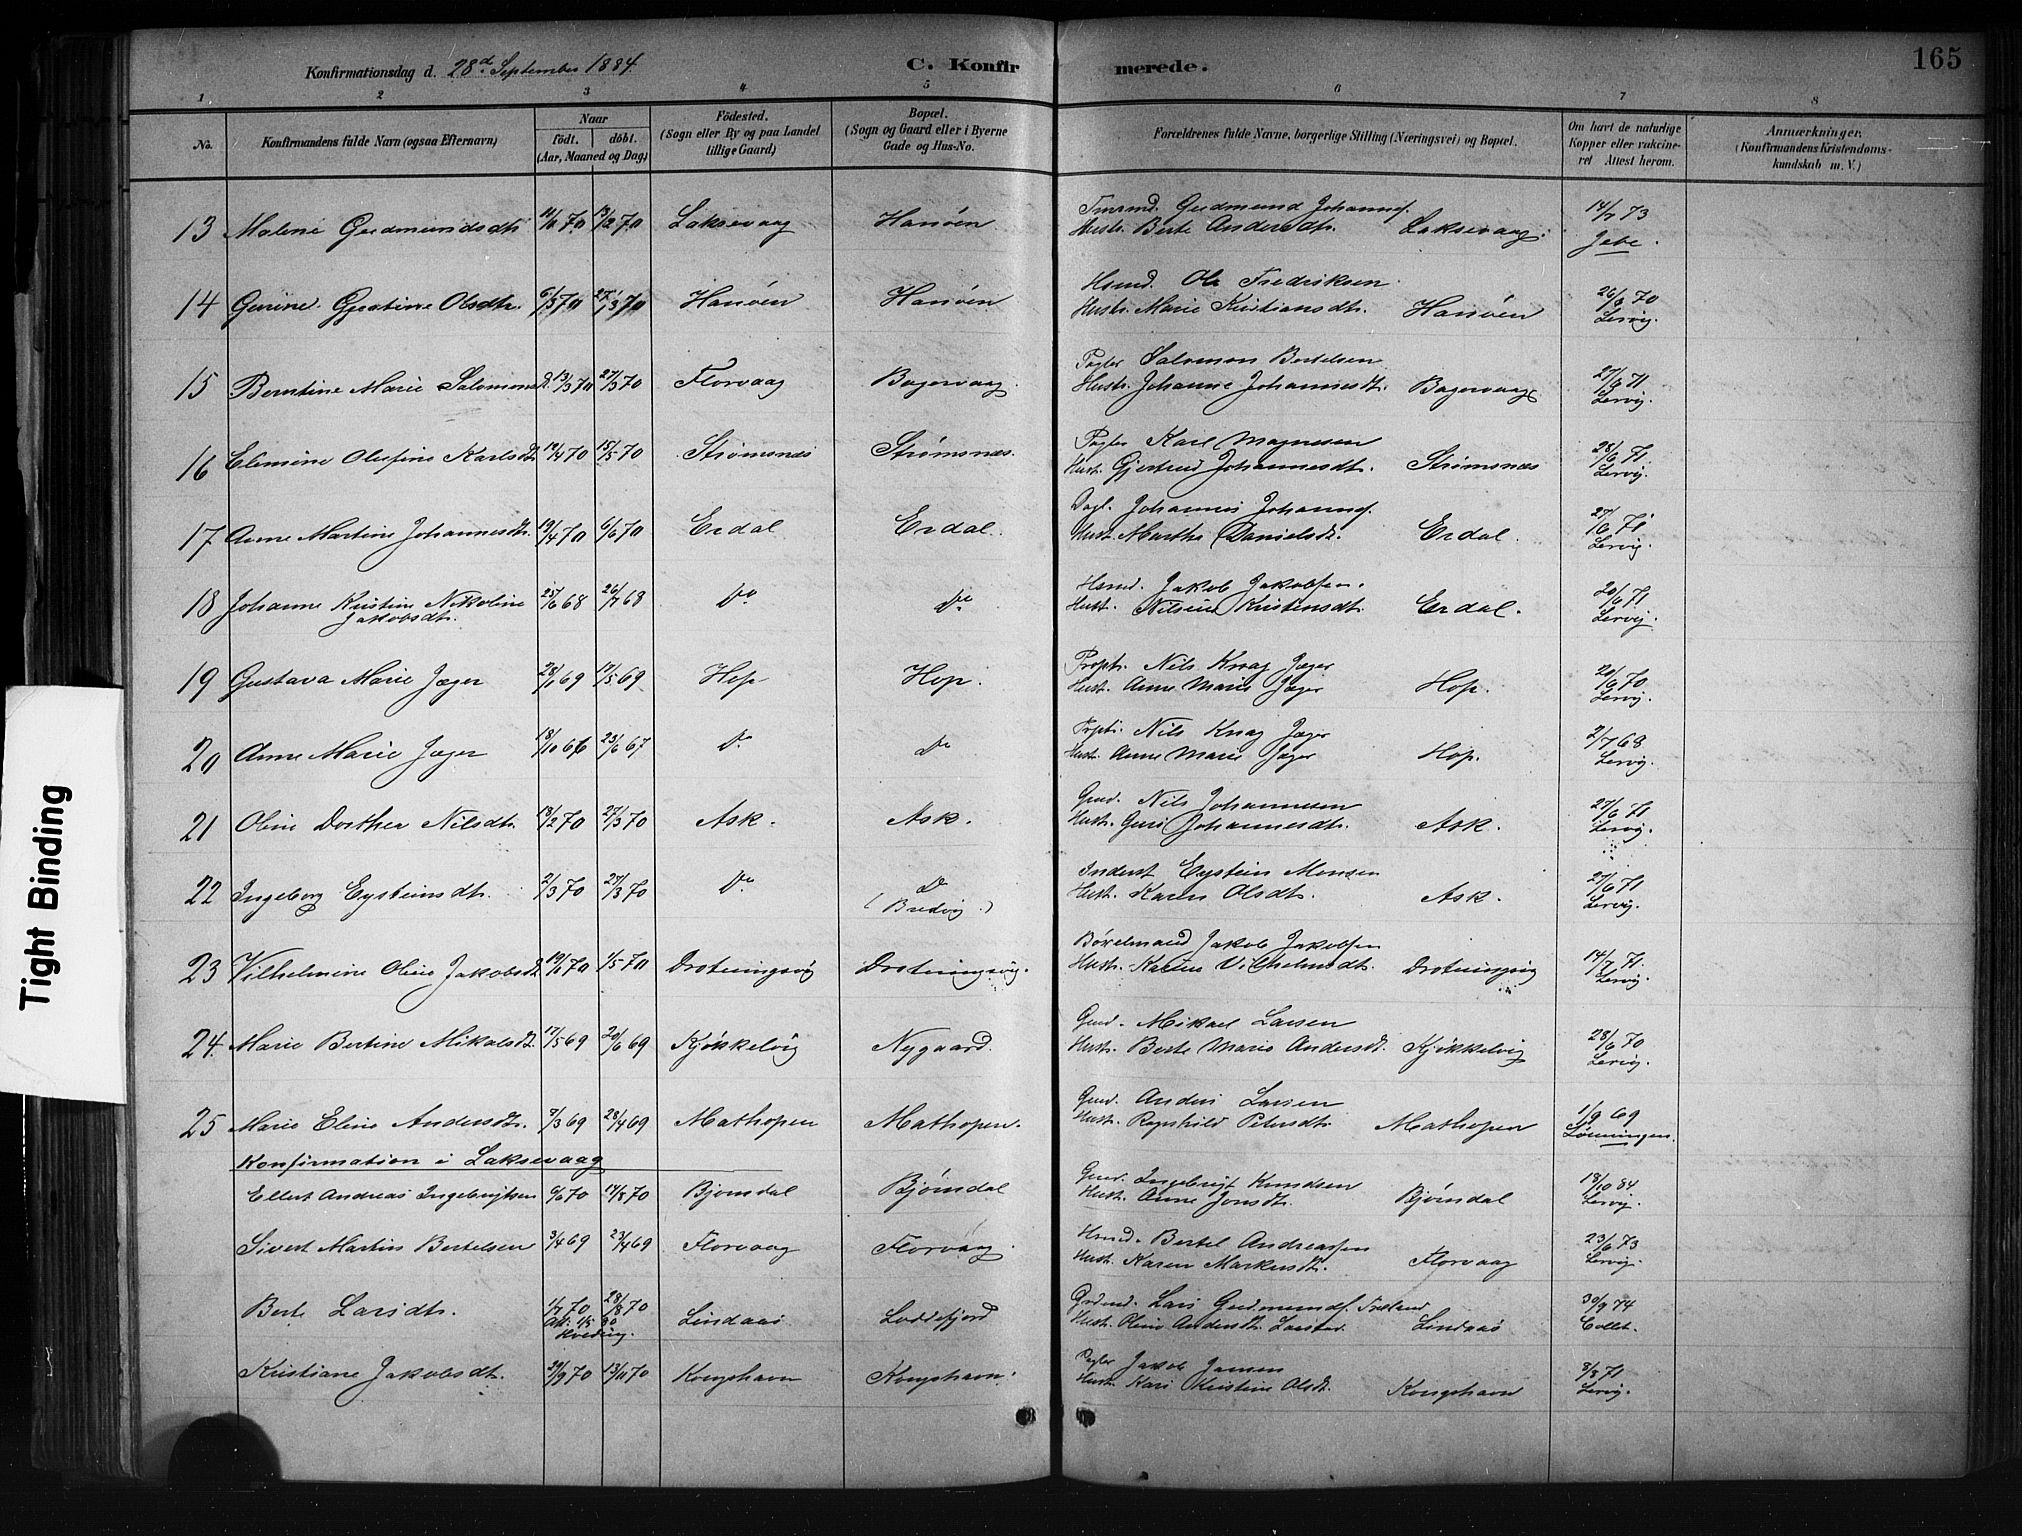 165
Konfirmationsdag d. 28d. September 1884
C. Konfir merede.
1 2 3 4 5 6 7 8
No.
Konfirmandens fulde Navn (ogsaa Efternavn)
Naar
født. døbt.
(Aar, Maaned og Dag)
Fødested.
(Sogn eller By og paa Landet
tillige Gaard)
Bopæl.
(Sogn og Gaard eller i Byerne
Gade og Hus-No.
Forældrenes fulde Navne, borgerlige Stilling (Næringsvei) og Bopæl.
Om havt de naturlige
Kopper eller vakcine-
ret Attest herom.
Anmærkninger.
(Konfirmandens Kristendoms-
kundskab m. V.)
13 Malene Gudmundsdtr 70 70 Laksevaag Hanøen Gudmund Johannes. Hustr. Berte Andersdtr. Laksevaag. 14/7 73
Jebe.
14 Olsdtr. 70 27/3 70 Hanøen Hanøen Hsmd. Ole Fredriksen
Hustr. Marie Kristiansdtr. Hanøen 26/6 70
Lervig.
15 Berntine Marie Salomonsd. 13/3 70 27/3 70 Florvaag Bagervaag. Salomon Bertelsen
Hustr. Johanne Johannesdtr. Bagervaag 27/6 71
Lervig.
16 Olufine Karlsdtr 70 15/5 70 Strømsnæs Strømsnæs. Karl Magnesen
Hust. Gjertrud Johannesdtr. Strømsnæs 28/6 71
Lervig.
17 Anne Martine Johannesdtr. 19/4 70 6/6 70 Erdal Erdal. Dagl. Johannes Johannes.
Hust. Marthe Danielsdt. Erdal. 27/6 71
Lervig.
18 Johanne Kristine Nikoline
Jakobsdtr. 25/6 68 26/7 68 Do Do Hsmd. Jakob Jakobsen.
Hust. Kristensdtr Erdal. 20/6 71
Lervig.
19 Gustava Marie Jæger 28/1 69 17/5 69 Hop Hop. Proptr. Nils Knag Jæger
Hust. Anne Marie Jæger Hop. 20/6 70
Lervig.
20 Anne Marie Jæger 18/10 66 23/6 67 Do Do Nils Knag Jæger
Hust. Anne Marie Jæger Hop. 2/7 68
Lervig.
21 Oline Dorthea Nilsdtr. 18/2 70 27/3 70 Ask. Ask. Gmd. Nils Johannesen
Hustr. Guri Johannesdtr. Ask. 27/6 71
Lervig.
22 Ingeborg Eysteinsdtr. 2/3 70 27/3 70 Do Do
(Bredvig.) Inderst Eystein Monsen
Hust. Karen Olsdtr. Ask. 27/6 71
Lervig.
23 Vilhelmine Oline Jakobsdt. 70 1/5 70 Drotningsvig Drotningsvig. Jakob Jakobsen
Hustr. Karine Vilhelmsdt. Drotningsvig 14/7 71.
Lervig.
24. Marie Bertine Mikalsdt. 17/5 69 20/6 69 Kjøkkelvig Nygaard. Gmd. Mikael Larsen
Hustr. Berte Marie Andersdt. Kjøkkelvig 28/6 70
Lervig.
25 Marie Eline Andersdtr. 7/3 69 28/4 69 Mathopen Mathopen. Gmd. Anders Larsen
Hustr. Ragnhild Petersdtr Mathopen 1/9 69
Lønningen.
Konfirmation i Laksevaag
Ellert Andreas Ingebrigtsen 70 14/8 70 Bjørndal Bjørndal Ingebrigt Knudsen
Hustr. Anne Jonsdtr. Bjørndal 18/10 84
Lervig.
Sivert Martin Bertelsen 3/4 69 23/4 69 Florvaag Florvaag. Hsmd. Bertel Andreassen
Hust. Karen Markusdtr. Florvaag 23/6 73
Lervig.
Berte Larsdtr. 1/7 70 28/8 70 Lindaas Loddefjord Lars
Hustr. Oline Andersdt. Lindaas 30/9 74
Collet.
Kristiane Jakobsdtr. 29/9 70 13/11 70 Kongshavn Kongshavn. Jakob Jansen
Hust. Kari Kristine Olsdt. Kongshavn 8/8 71
Lervig.
Tight Binding